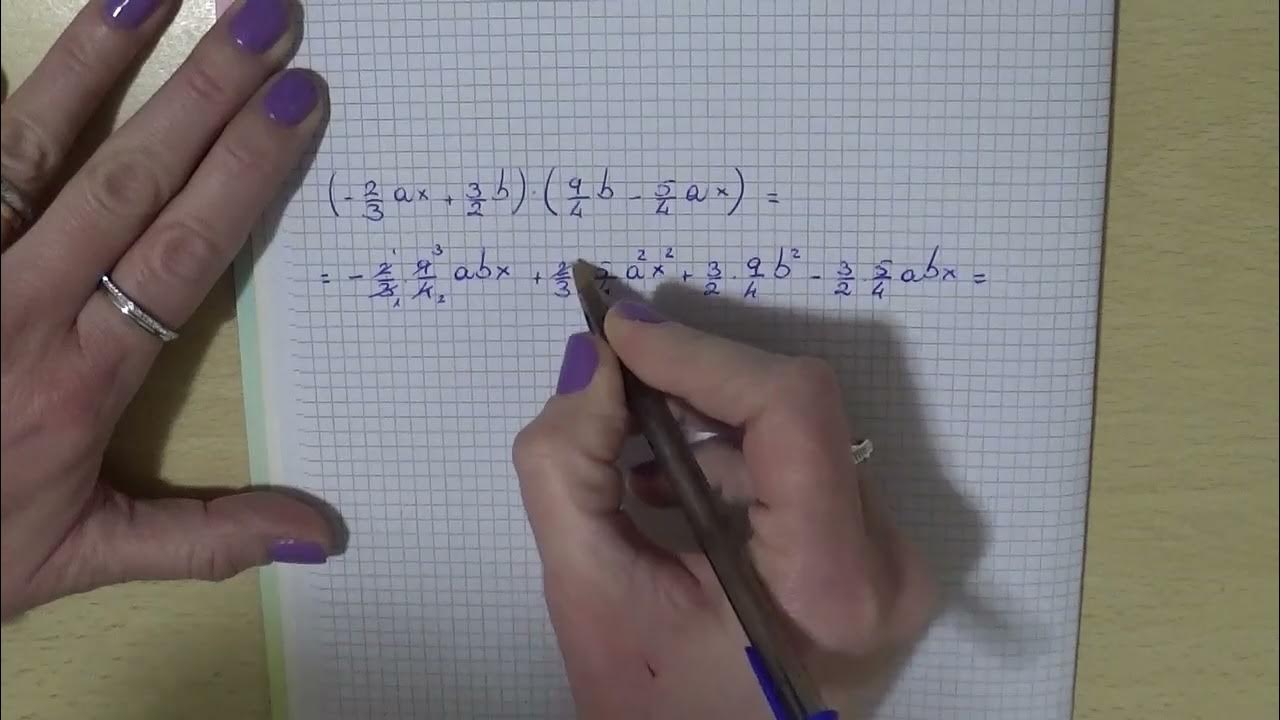 (-2/3 ax + 3/2 b) · (9/4 b - 5/4 ax) =
= - 2¹/3₁ 9³/4₂ abx + 2/3 5/4 a²x² + 3/2 · 9/4 b² - 3/2 · 5/4 abx =